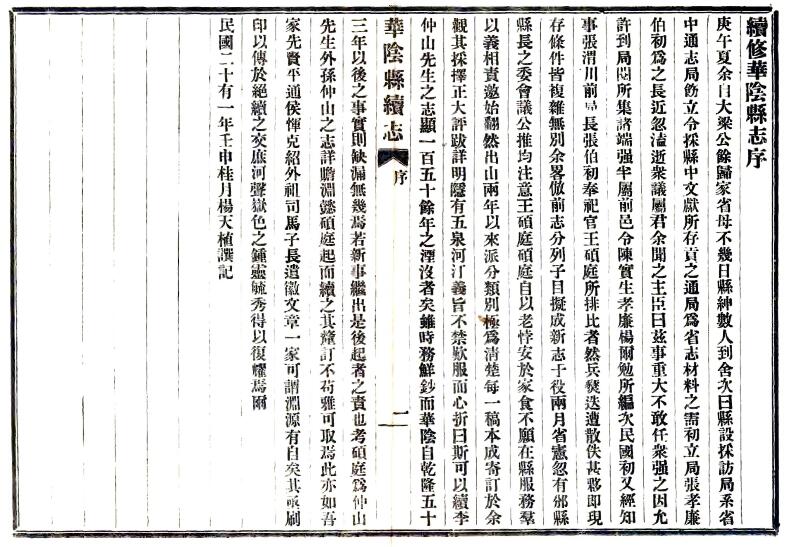 續修華陰縣志序
庚午夏余自大梁公餘歸家省母不幾日縣紳數人到舍次曰縣設採訪局系省
中通志局飭立令採縣中文獻所存貢之通局爲省志材料之需初立局張孝廉
伯初爲之長近忽溘逝衆議屬君余聞之主臣曰茲事重大不敢任衆强之因允
許到局閱所集諸端强半屬前邑令陳實生孝廉楊爾勉所編次民國初又經知
事張渭川前局長張伯初奉祀官王碩庭所排比者然兵燹迭遭散佚甚夥即現
存條件皆複雜無別余畧倣前志分列子目擬成新志于役兩月省憲忽有邠縣
縣長之委會議公推均注意王碩庭碩庭自以老悖安於家食不願在縣服務羣
以義相責邀始翻然出山兩年以來派分類別極爲清楚每一稿本成寄訂於余
觀其採擇正大評跋詳明隱有五泉河汀義旨不禁歎服而心折曰斯可以續李
仲山先生之志顯一百五十餘年之湮沒者矣雖時務鮮鈔而華陰自乾隆五十
華陰縣續志 序 二
三年以後之事實則缺漏無幾焉若新事繼出是後起者之責也考碩庭爲仲山
先生外孫仲山之志詳贍淵懿碩庭起而續之其釐訂不苟雅可取焉此亦如吾
家先賢平通侯惲克紹外祖司馬子長遺徽文章一家可謂淵源有自矣其亟刷
印以傳於絕續之交庶河聲嶽色之鍾靈毓秀得以復耀焉爾
民國二十有一年壬申桂月楊天植譔記